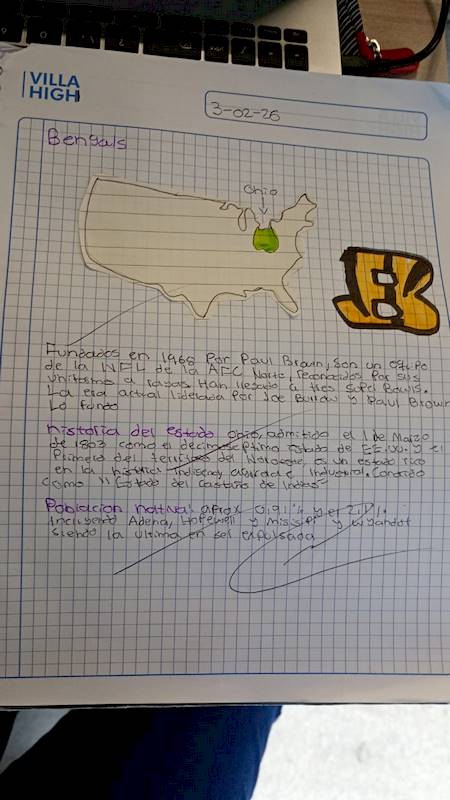 VILLA
HIGH
3-02-26
Bengals
Ohio
B
Fundados en 1968 Por Paul Brown, Son un equipo
de la NFL de la AFC Norte, reconocidos Por sus
uniformes a rayas Han llegado a tres Super Bowls.
La era actual liderada Por Joe Burrow y Paul Brown
Lo fundo
historia del estado Ohio, admitido el 1 de Marzo
de 1803 como el decimoseptimo Estado de EE.UU. y el
Primero del territorio del Noroeste, es un estado rico
en la historia indigena, agricola e Industrial. Conocido
como "Estado del castaño de Indias"
Poblacion nativa: aprox 0.91% y el 2.1%.
Incluyendo Adena, Hopewell y misisipi y wyandot
siendo la ultima en ser expulsada